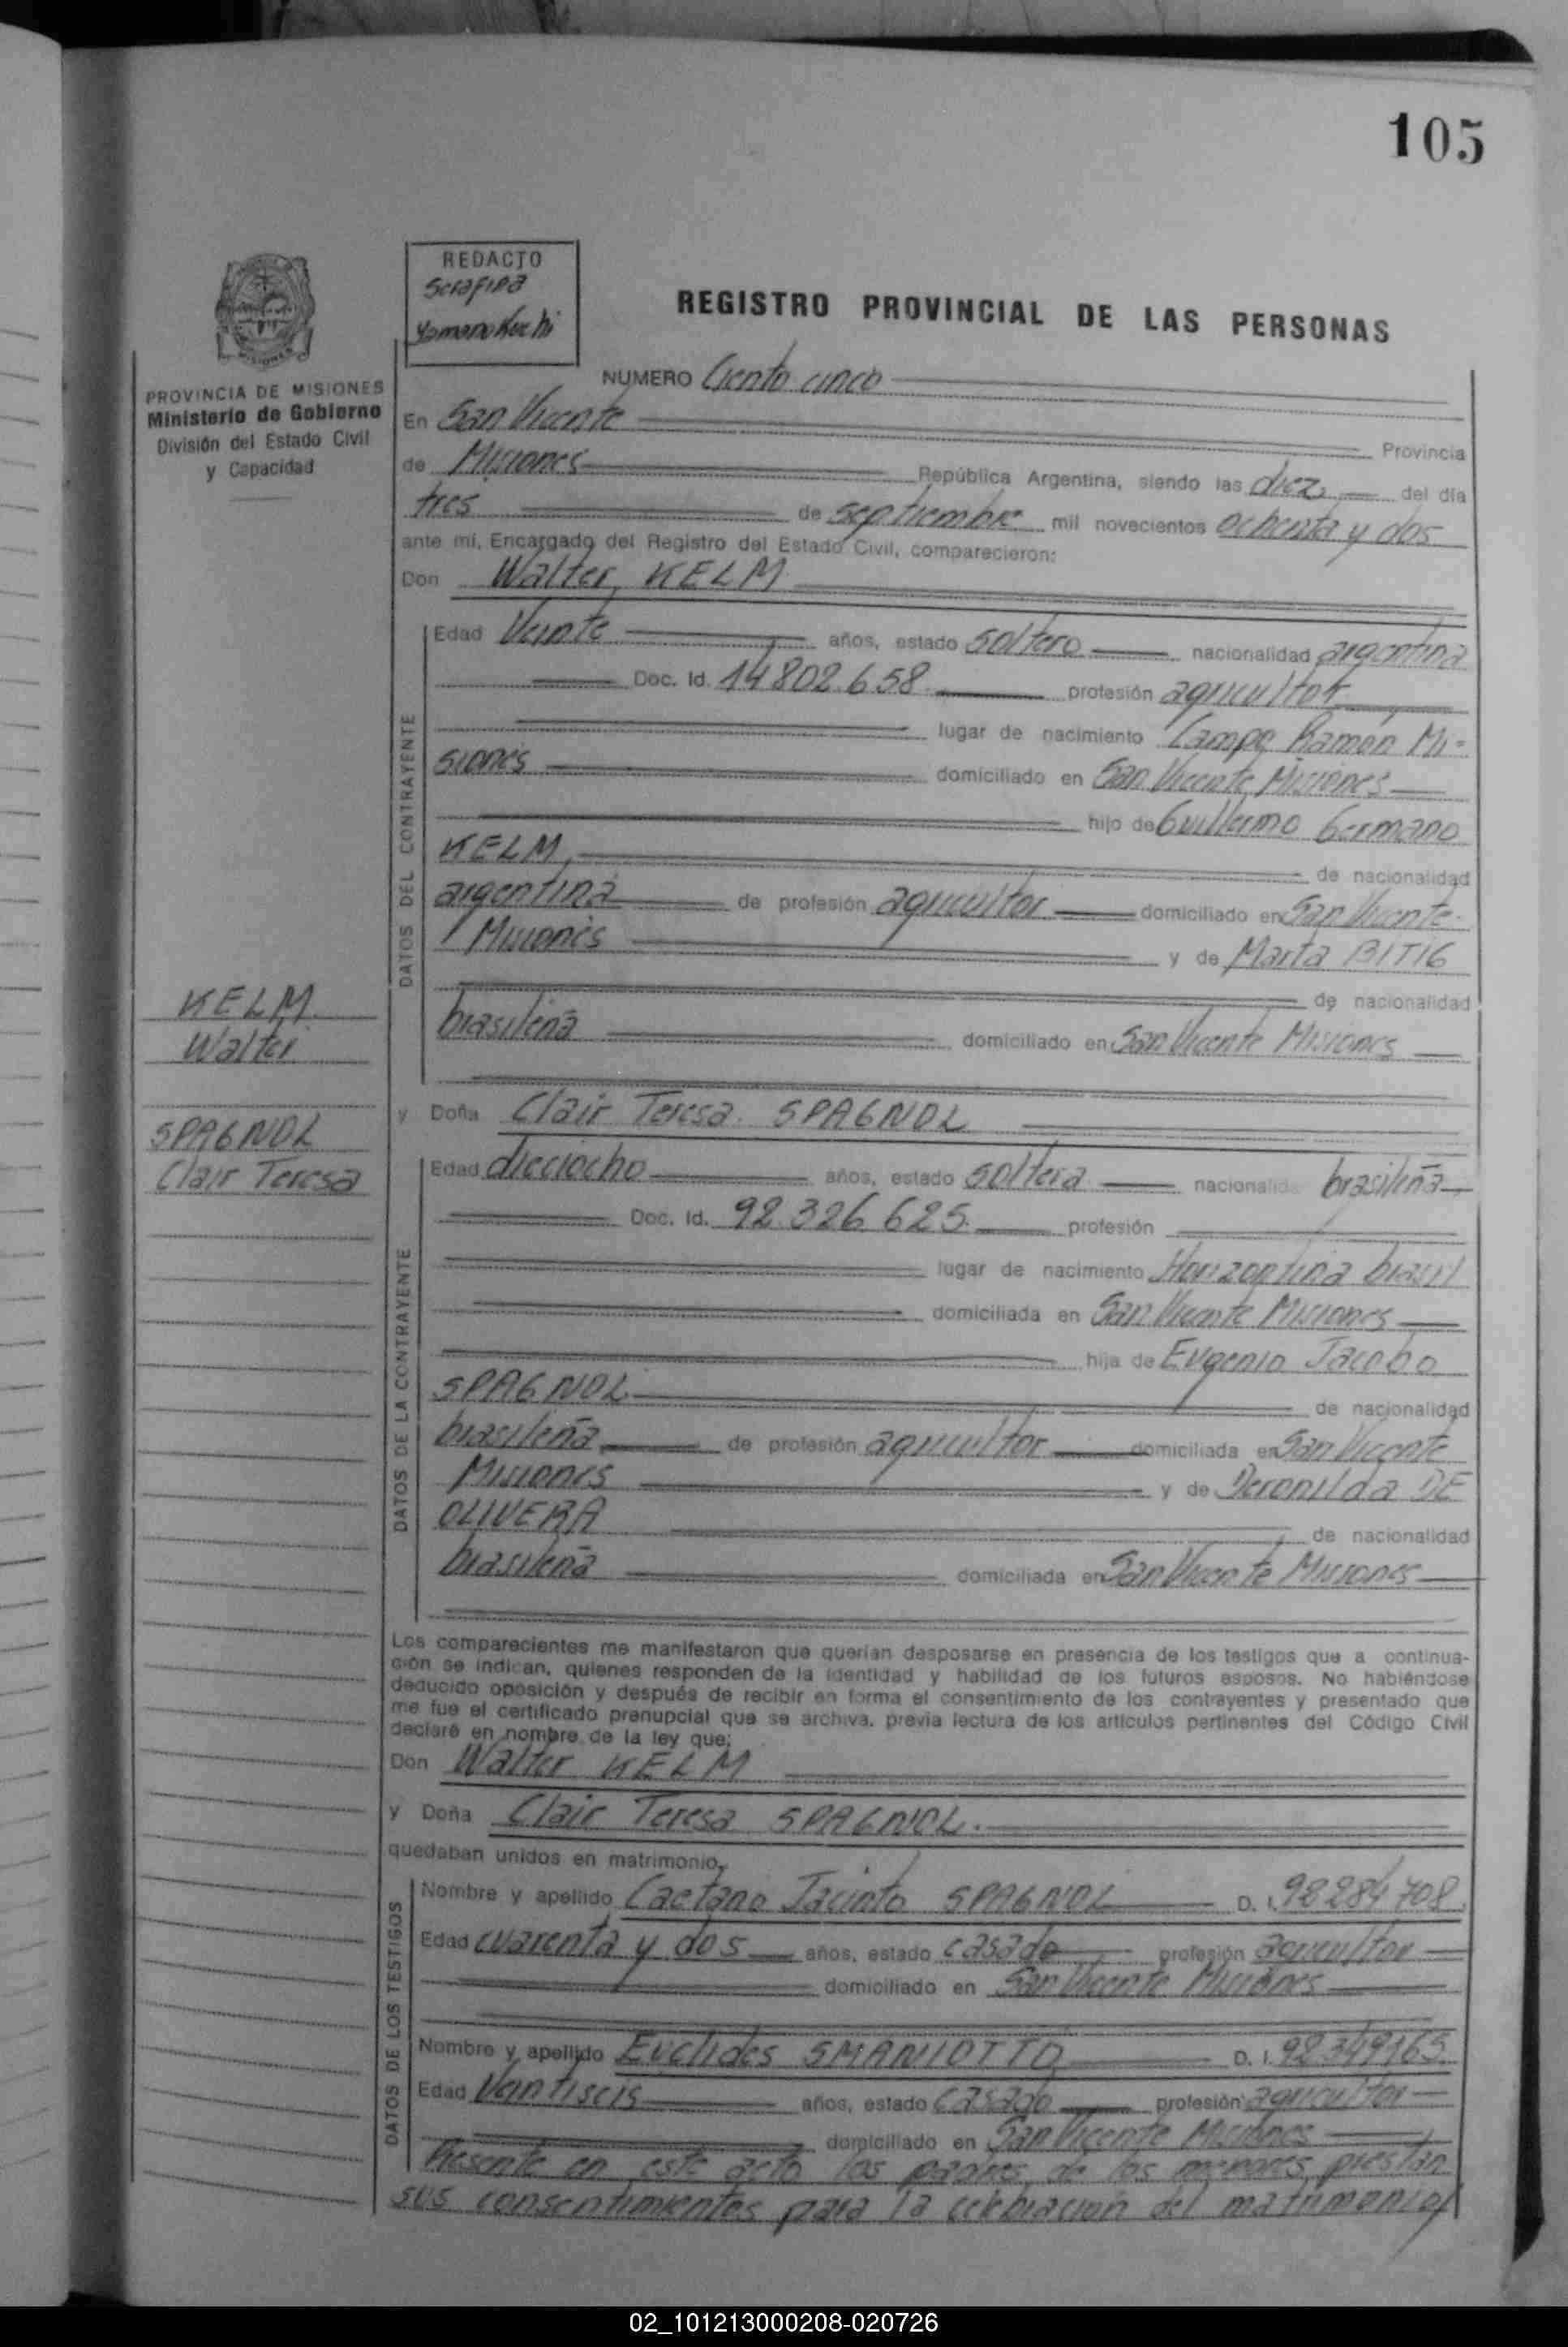 105
REDACTO
Serafina
Yamanokuchi
REGISTRO PROVINCIAL DE LAS PERSONAS
PROVINCIA DE MISIONES
Ministerio de Gobierno
División del Estado Civil
y Capacidad
NUMERO Ciento cinco
En San Vicente Provincia
de Misiones República Argentina, siendo las diez del día
tres de septiembre mil novecientos ochenta y dos
ante mí, Encargado del Registro del Estado Civil, comparecieron:
Don Walter KELM
DATOS DEL CONTRAYENTE
Edad Veinte años, estado soltero nacionalidad argentina
Doc. Id. 14.802.658 profesión agricultor
lugar de nacimiento Campo Ramón Mi-
siones domiciliado en San Vicente Misiones
hijo de Guillermo Germano
KELM, de nacionalidad
argentina de profesión agricultor domiciliado en San Vicente
Misiones y de Marta BITIG
de nacionalidad
brasileña domiciliado en San Vicente Misiones
KELM
Walter
SPAGNOL
Clair Teresa
y Doña Clair Teresa SPAGNOL
DATOS DE LA CONTRAYENTE
Edad dieciocho años, estado soltera nacionalida brasileña
Doc. Id. 92.326.625 profesión
lugar de nacimiento Horizontina brasil
domiciliada en San Vicente Misiones
hija de Eugenio Jacobo
SPAGNOL de nacionalidad
brasileña de profesión agricultor domiciliada en San Vicente
Misiones y de Deronilda DE
OLIVERA de nacionalidad
brasileña domiciliada en San Vicente Misiones
Los comparecientes me manifestaron que querían desposarse en presencia de los testigos que a continua-
ción se indican, quienes responden de la identidad y habilidad de los futuros esposos. No habiéndose
deducido oposición y después de recibir en forma el consentimiento de los contrayentes y presentado que
me fue el certificado prenupcial que se archiva, previa lectura de los artículos pertinentes del Código Civil
declaré en nombre de la ley que:
Don Walter KELM
y Doña Clair Teresa SPAGNOL.
quedaban unidos en matrimonio,
DATOS DE LOS TESTIGOS
Nombre y apellido Caetano Jacinto SPAGNOL D. I. 92284708
Edad cuarenta y dos años, estado casado profesión agricultor
domiciliado en San Vicente Misiones
Nombre y apellido Euclides SMANIOTTO D. I. 92349165
Edad Veintiseis años, estado casado profesión agricultor
domiciliado en San Vicente Misiones
Presente en este acto los padres de los menores prestan
sus consentimientos para la celebracion del matrimonio
02_101213000208-020726